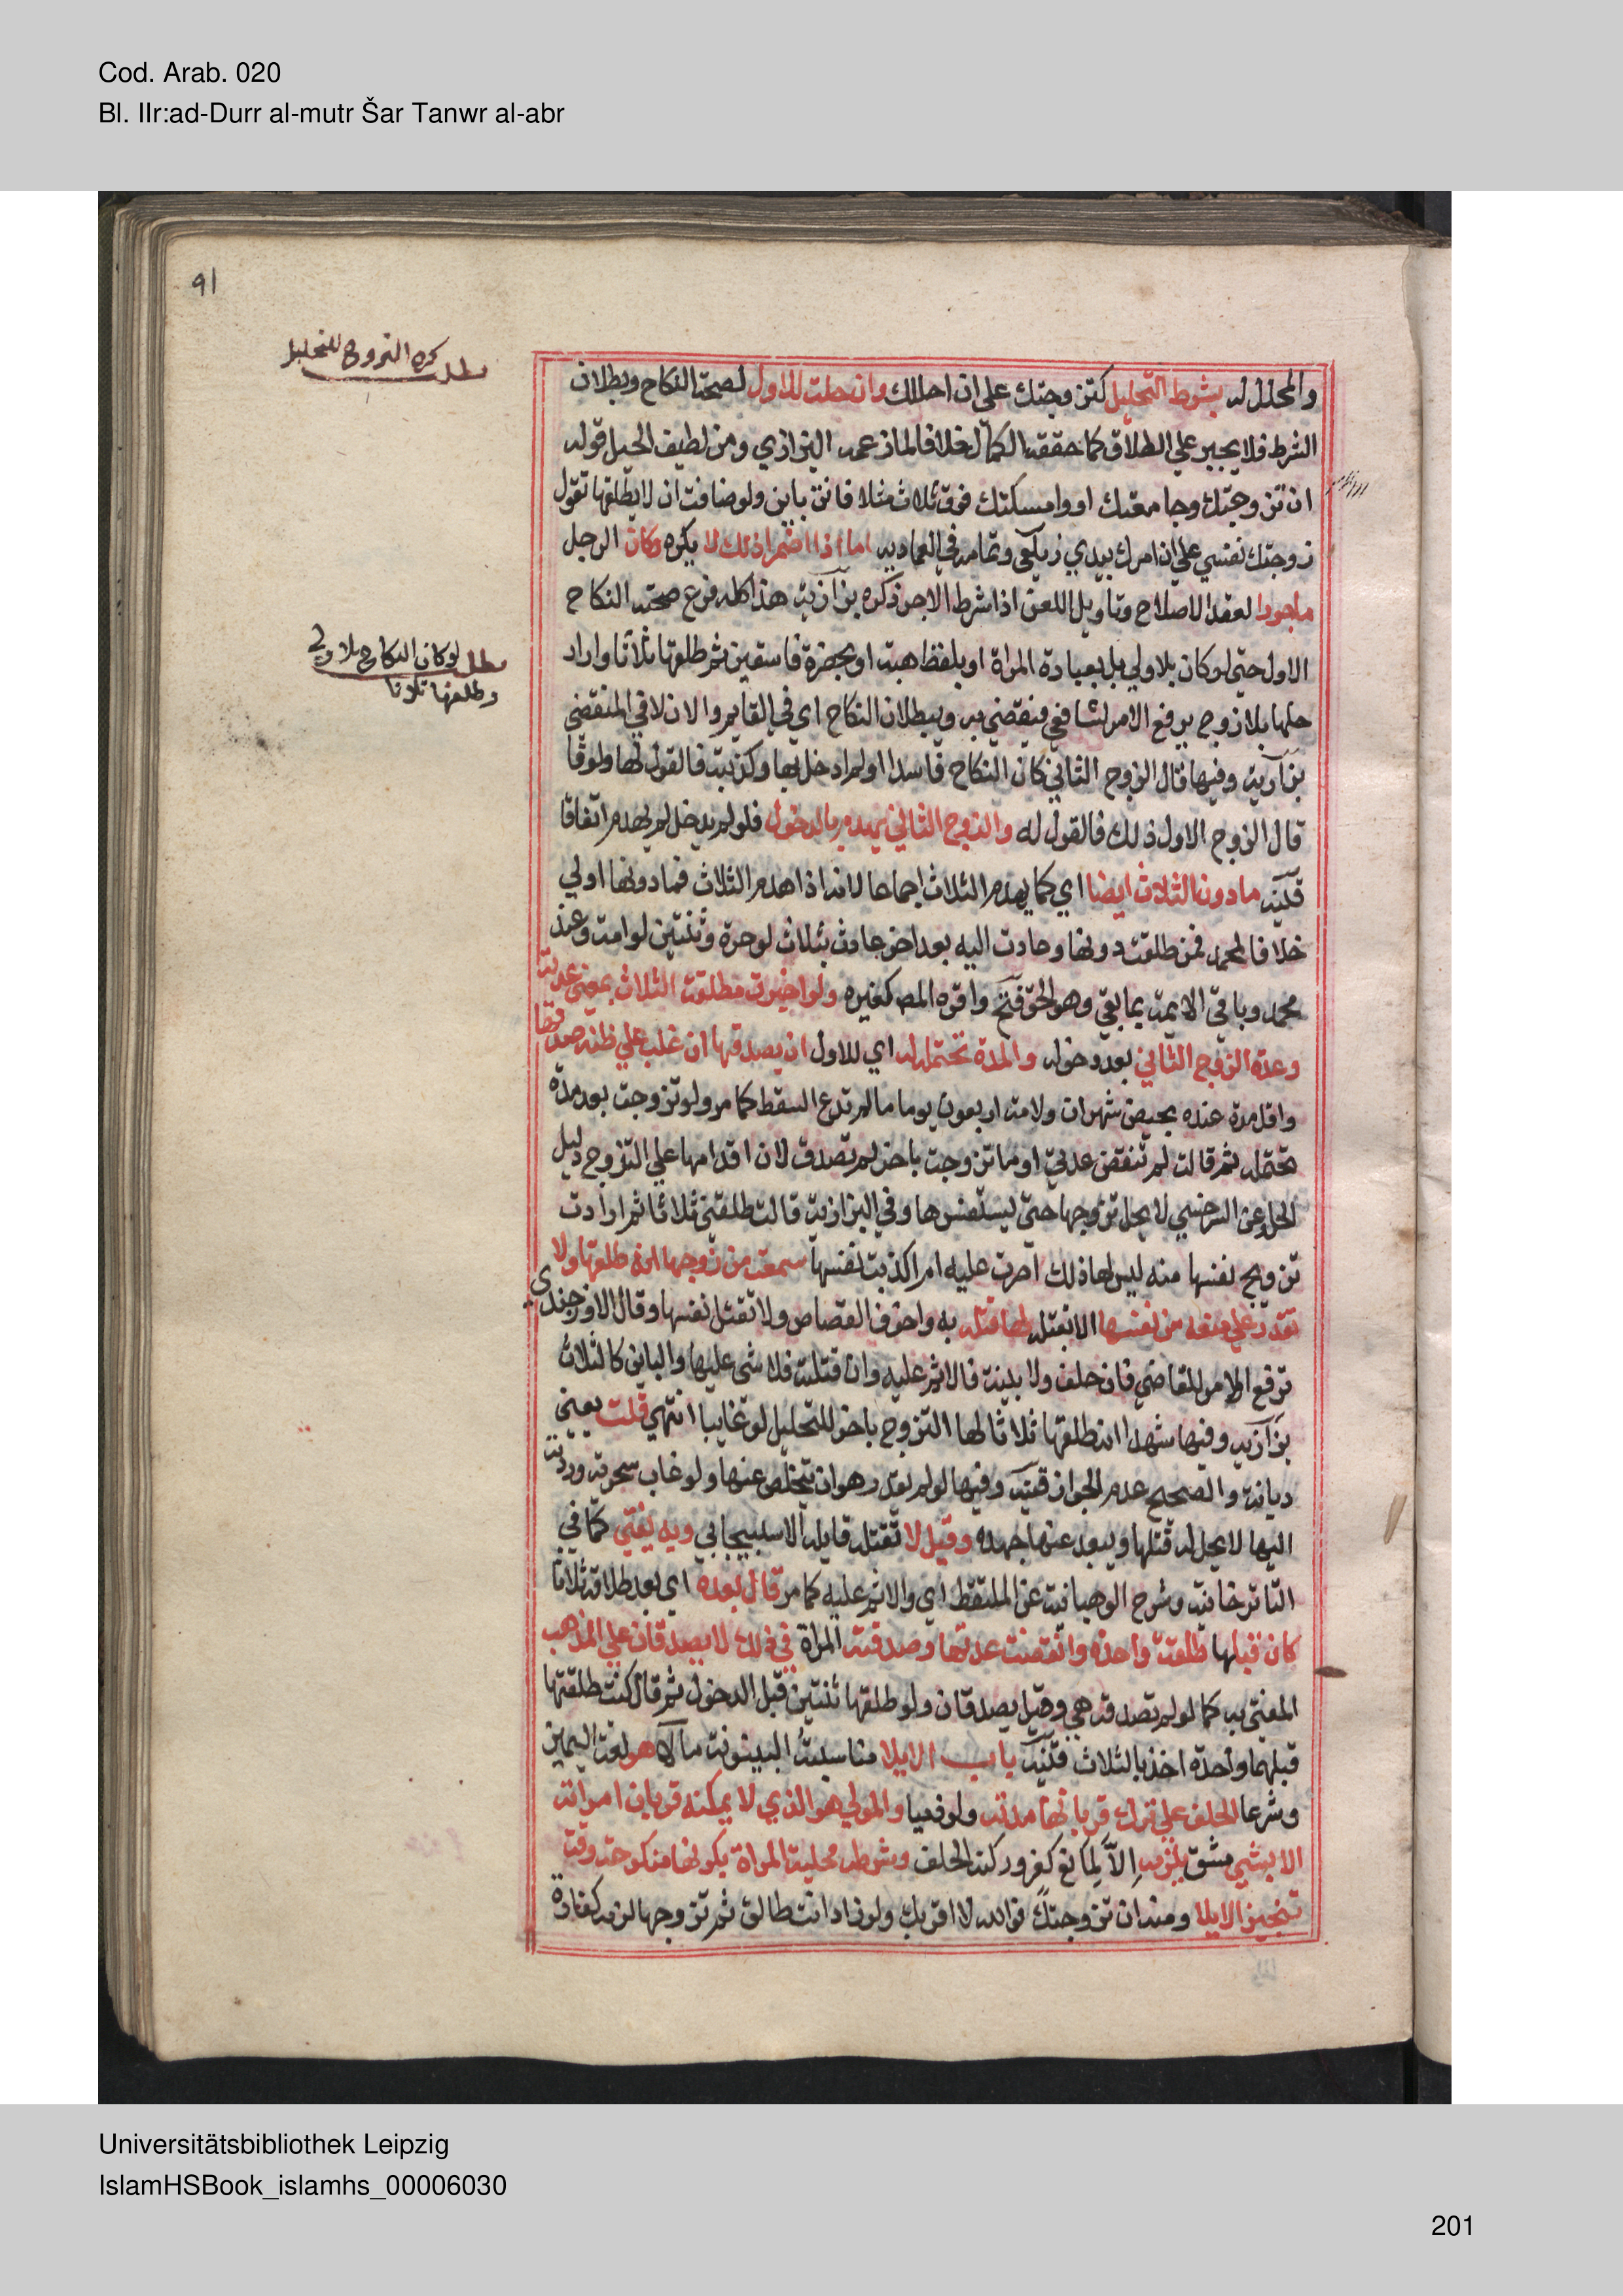 Cod. Arab. 020
Bl. IIr:ad-Durr al-mutr Šar Tanwr al-abr
91
مطلب كره التزوج للتحليل
والمحلل له بشرط التحليل كتزوجتك على ان احلك وان حلت للاول لصحة النكاح وبطلان
الشرط فلا يجبر علي الطلاق كما حققه الكمال خلافا لما زعمه البزازي ومن لطيف الحيل قوله
ان تزوجتك وجامعتك او وامسكتك فوق ثلاث مثلا فانت باين ولو خافت ان لا يطلقها تقول
زوجتك نفسي علي ان امرك بيدي زيلعي وتمامه في العمادية اما اذا اضمرا ذلك لا يكره وكان الرجل
ماجورا لعقد الاصلاح وتاويل اللعن اذا شرط الاجر ذكره بزازية هذا كله فرع صحة النكاح
مطلب لو كان النكاح بلا ولي
وطلقها ثلاثا
الاول حتي لو كان بلا ولي بل بعبارة المراة او بلفظ هبة او بحضرة فاسقين ثم طلقها ثلاثا واراد
حلها بلا زوج يرفع الامر لشافعي فيقضي به وببطلان النكاح اي في القايم والان لا في المنقضي
بزازية وفيها قال الزوج الثاني كان النكاح فاسدا او لم ادخل بها وكذبته فالقول لها ولو قا
قال الزوج الاول ذلك فالقول له والزوج الثاني يهدم بالدخول فلو لم يدخل لم يهدم اتفاقا
قنية ما دون الثلاث ايضا اي كما يهدم الثلاث اجماعا لانه اذا هدم الثلاث فما دونها اولي
خلافا لمحمد فمن طلقت دونها وعادت اليه بعد اخر عادت بثلاث لو حرة وثنتين لو امة وعند
محمد وباقي الايمة بما بقي وهو الحق فتح واقره المص كغيره ولو اخبرت مطلقة الثلاث بمضي عدته
وعدة الزوج الثاني بعد دخوله والمدة تحتمله له اي للاول ان يصدقها ان غلب علي ظنه صدقها
واقل مدة عنده بحيض شهران ولامة اربعون يوما ما لم تدع السقط كما مر ولو تزوجت بعد مدة
تحتمله ثم قالت لم تنقض عدتي او ما تزوجت باخر لم تصدق لان اقدامها علي التزوج دليل
الحل وعن السرخسي لا يحل تزوجها حتي يستفسرها وفي البزازية قالت طلقني ثلاثا ثم ارادت
تزويج نفسها منه ليس لها ذلك اصرت عليه ام اكذبت نفسها سمعت من زوجها انه طلقها ولا
تقدر علي منعه من نفسها الا بقتله لها قتله به واخوف القصاص ولا تقتل نفسها وقال الاوزجندي
ترفع الامر للقاضي فان حلف ولا بينة فالاثم عليه وان قتلته فلا شي عليها والباين كالثلاث
بزازية وفيها شهدا انه طلقها ثلاثا لها التزوج باخر للتحليل لو غايبا انتهي قلت يعني
ديانة والصحيح عدم الجواز قنية وفيها لو لم يقدر هو ان يتخلص عنها ولو غاب سحرته وردته
اليها لا يحل له قتلها ويبعد عنها جهده وقيل لا تقتله قايله الاسبيجابي وبه يفتي كما في
التاتر خانية وشرح الوهبانية عن الملتقط اي والاثم عليه كما مر قال بعده اي بعد طلاقه ثلاثا
كان قبلها طلقة واحدة وانقضت عدتها وصدقته المراة في ذلك لا يصدقان علي المذهب
المفتي به كما لو لم تصدقه هي وقيل يصدقان ولو طلقها ثنتين قبل الدخول ثم قال كنت طلقتها
قبلهما واحدة اخذ بالثلاث قنية باب الايلا مناسبته البينونة مالا هو لغة اليمين
وشرعا الحلف علي ترك قربانها مدته ولو ذميا والمولي هو الذي لا يمكنه قربان امراته
الا بشي مشق يلزمه الا لمانع كفر وركنه الحلف وشرطه محلية المراة بكونها منكوحة وقت
تنجيز الايلا ومنه ان تزوجتك فوالله لا اقربك ولو زاد انت طالق ثم تزوجها لزمه كفارة
Universitätsbibliothek Leipzig
IslamHSBook_islamhs_00006030
201